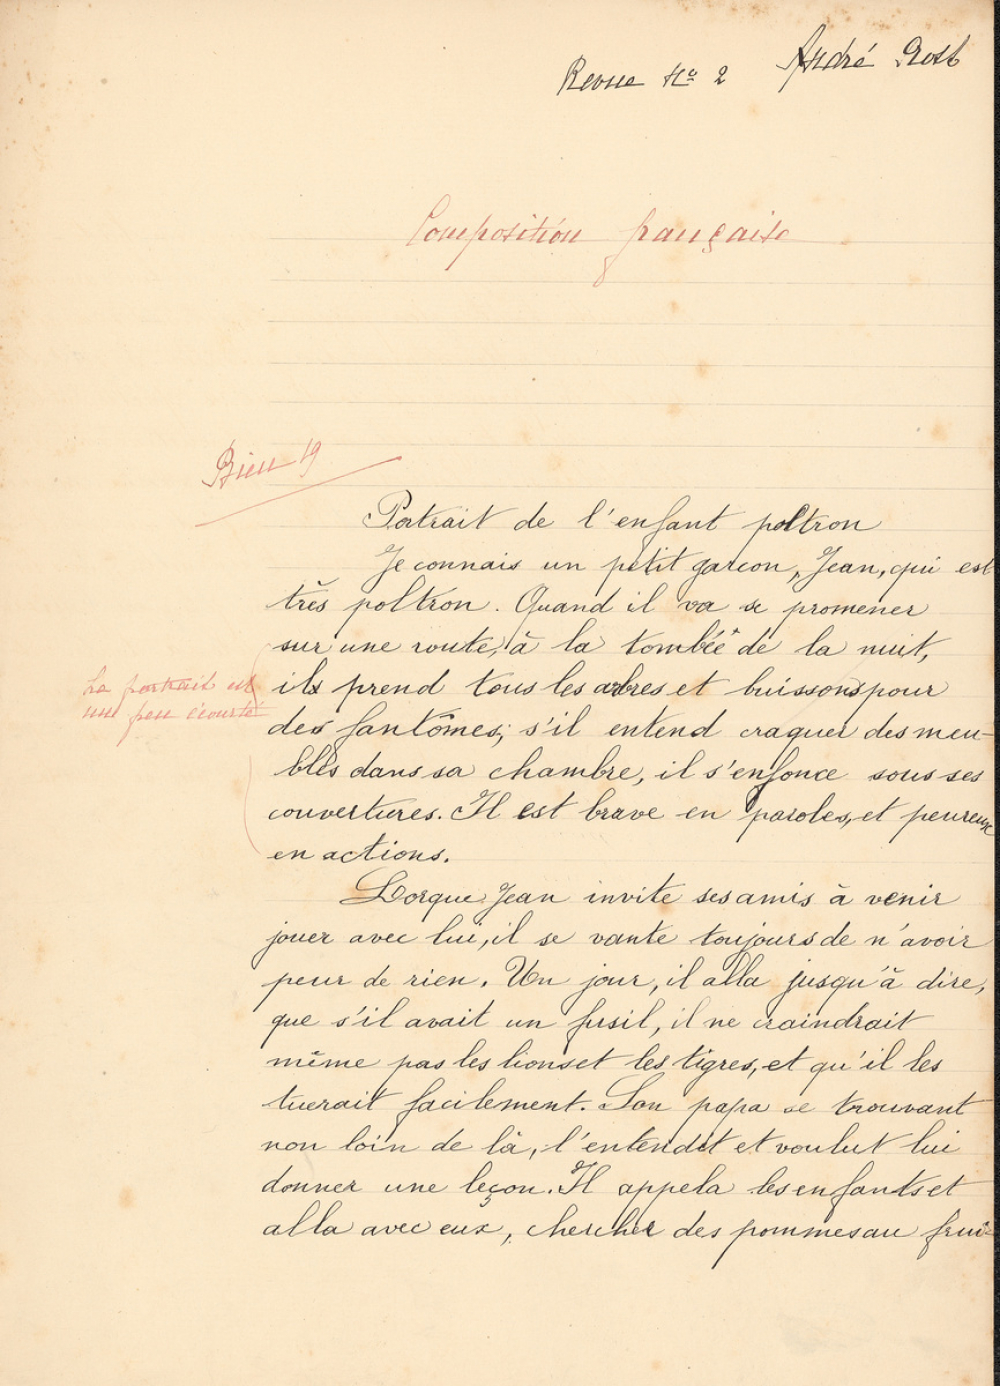 Revue No 2 André Prost
Composition française
Bien 19
Portrait de l'enfant poltron
Je connais un petit garçon, Jean, qui est
très poltron. Quand il va se promener
sur une route, à la tombée de la nuit,
Le portrait est
un peu écourté
ils prend tous les arbres et buissons pour
des fantômes; s'il entend craquer des meu-
bles dans sa chambre, il s'enfonce sous ses
couvertures. Il est brave en paroles, et peureux
en actions.
Lorque Jean invite ses amis à venir
jouer avec lui, il se vante toujours de n'avoir
peur de rien. Un jour, il alla jusqu'à dire,
que s'il avait un fusil, il ne craindrait
même pas les lions et les tigres, et qu'il les
tuerait facilement. Son papa se trouvant
non loin de là, l'entendit et voulut lui
donner une leçon. Il appela les enfants et
alla avec eux, chercher des pommes au frui-